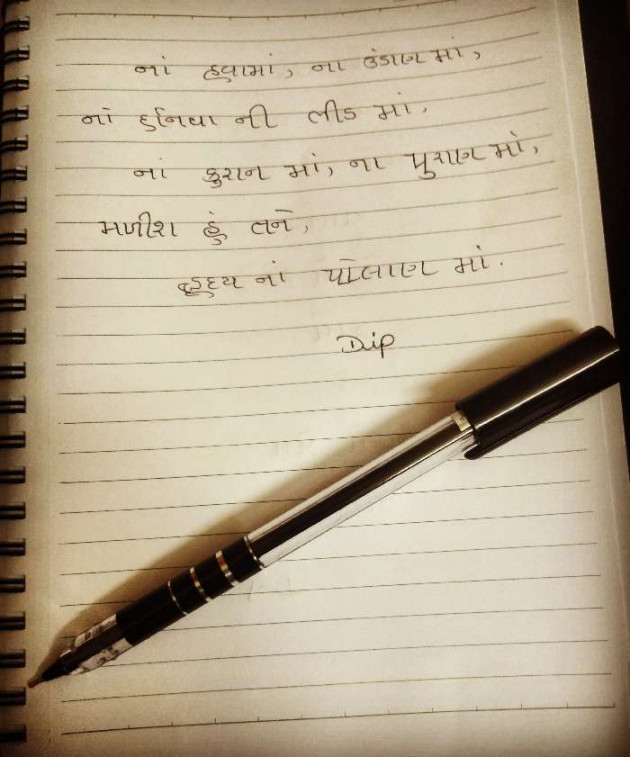 નાં હવામાં, ના ઉંડાણ માં,
નાં દુનિયા ની ભીડ માં,
નાં કુરાન માં, ના પુરાણ માં,
મળીશ હું તને,
હૃદય નાં પોલાણ માં.
Dip